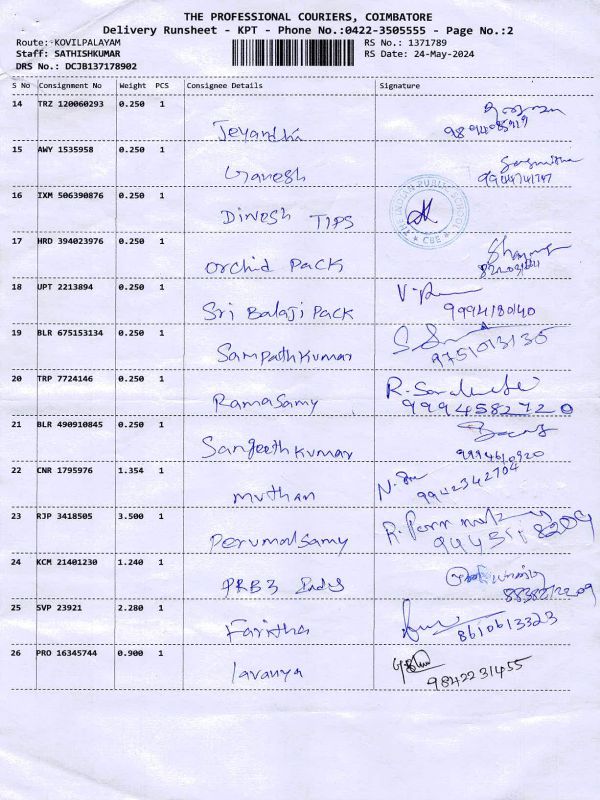 THE PROFESSIONAL COURIERS, COIMBATORE
Delivery Runsheet - KPT - Phone No.:0422-3505555 - Page No.:2
Route:-KOVILPALAYAM RS No.: 1371789
Staff: SATHISHKUMAR RS Date: 24-May-2024
DRS No.: DCJB137178902
S No Consignment No Weight PCS Consignee Details Signature
14 TRZ 120060293 0.250 1
Jeyandhi
15 AWY 1535958 0.250 1
Ganesh
16 IXM 506390876 0.250 1
Dinesh TIPS THE INDIAN PUBLIC SCHOOL CBE
17 HRD 394023976 0.250 1
Orchid Pack
18 UPT 2213894 0.250 1
Sri Balaji Pack 9994180140
19 BLR 675153134 0.250 1
Sampathkumar 9751013135
20 TRP 7724146 0.250 1
Ramasamy 9994582720
21 BLR 490910845 0.250 1
Sangeethkumar 9994610920
22 CNR 1795976 1.354 1
muthan 9942342704
23 RJP 3418505 3.500 1
Perumalsamy
24 KCM 21401230 1.240 1
PRB3 Indus
25 SVP 23921 2.280 1
Faritha 8610613323
26 PRO 16345744 0.900 1
lavanya 9842231455